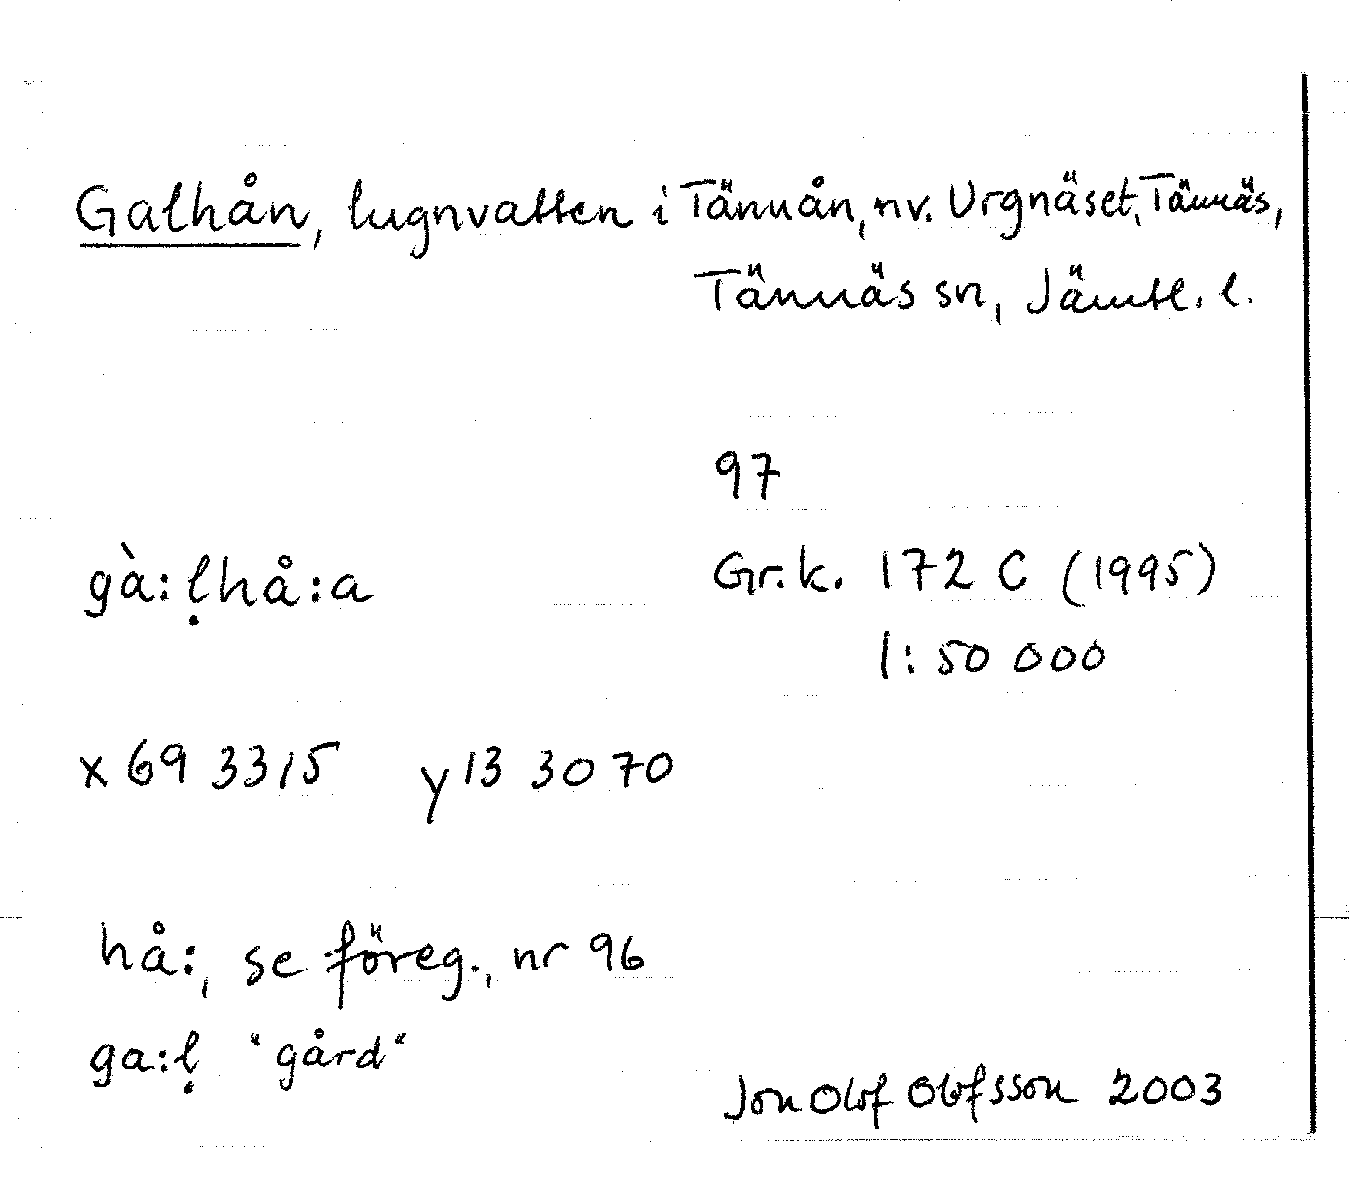 Galhån, lugnvatten i Tännån, nv. Urgnäset, Tännäs,
Tännäs sn, Jämtl. l.
97
gà:ḷhå:a
Gr.k. 172 C (1995)
1:50 000
x 69 3315 y 13 3070
hå:, se föreg., nr 96
ga:ḷ "gård"
Jon Olof Olofsson 2003